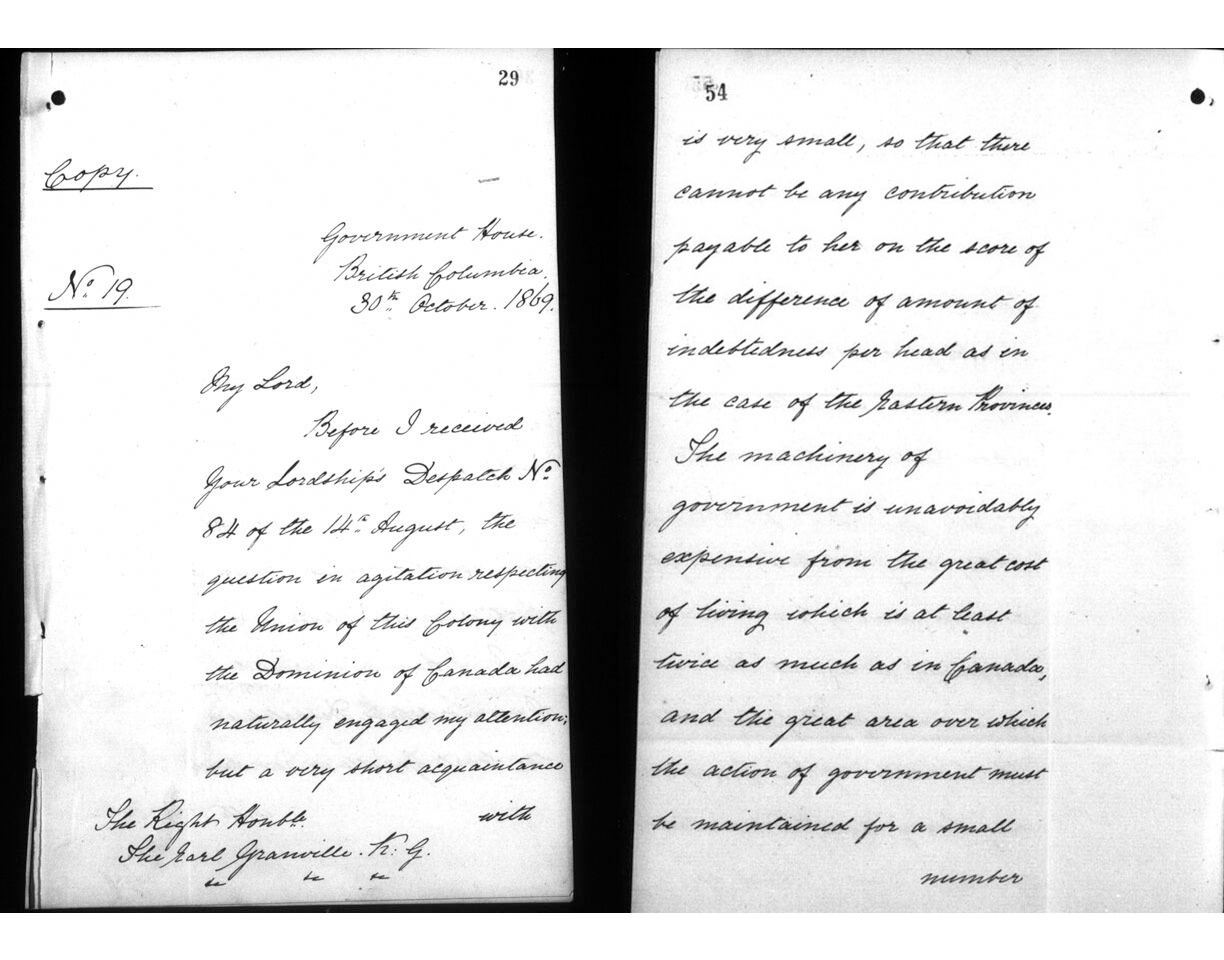 29
Copy.
Government House.
British Columbia.
No. 19.
30th October. 1869.
My Lord,
Before I received
Your Lordship's Despatch No.
84 of the 14th August, the
question in agitation respecting
the Union of this Colony with
the Dominion of Canada had
naturally engaged my attention;
but a very short acquaintance
with
The Right Honble.
The Earl Granville. K. G.
54
is very small, so that there
cannot be any contribution
payable to her on the score of
the difference of amount of
indebtedness per head as in
the case of the Eastern Provinces.
The machinery of
government is unavoidably
expensive from the great cost
of living which is at least
twice as much as in Canada,
and the great area over which
the action of government must
be maintained for a small
number